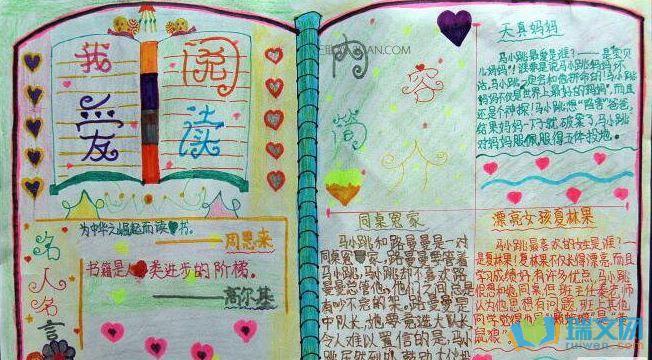 我爱
阅读
为中华之崛起而读书。
——周恩来
书籍是人类进步的阶梯。
——高尔基
名人名言
内容简介
天真妈妈
马小跳最爱是谁?——是宝贝
儿妈妈!谁要是说马小跳妈妈坏
话,马小跳一定会和他拼命的!马小跳
妈妈不仅是世界上最好的妈妈,而且
还是个神探!马小跳想"陷害"爸爸,
结果妈妈一下子就破案了,马小跳
对妈妈服佩服得五体投地。
同桌冤家
马小跳和路曼曼是一对
同桌冤家,路曼曼要管着
马小跳,马小跳却不喜欢路
曼曼总管他,他们之间总是
有吵不完的架。路曼曼是
中队长,她要竞选大队长
令人难以置信的是,马小
漂亮女孩夏林果
马小跳最喜欢的女生是谁?——
是夏林果!夏林果不仅长得漂亮,而且
学习成绩好有许多优点,马小跳
很想和她同桌,但班主任秦老师
认为他思想有问题,班上其他
瑞文网
ruiwen.com